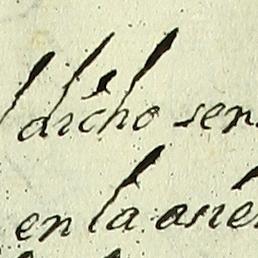 dicho sen
en la asie